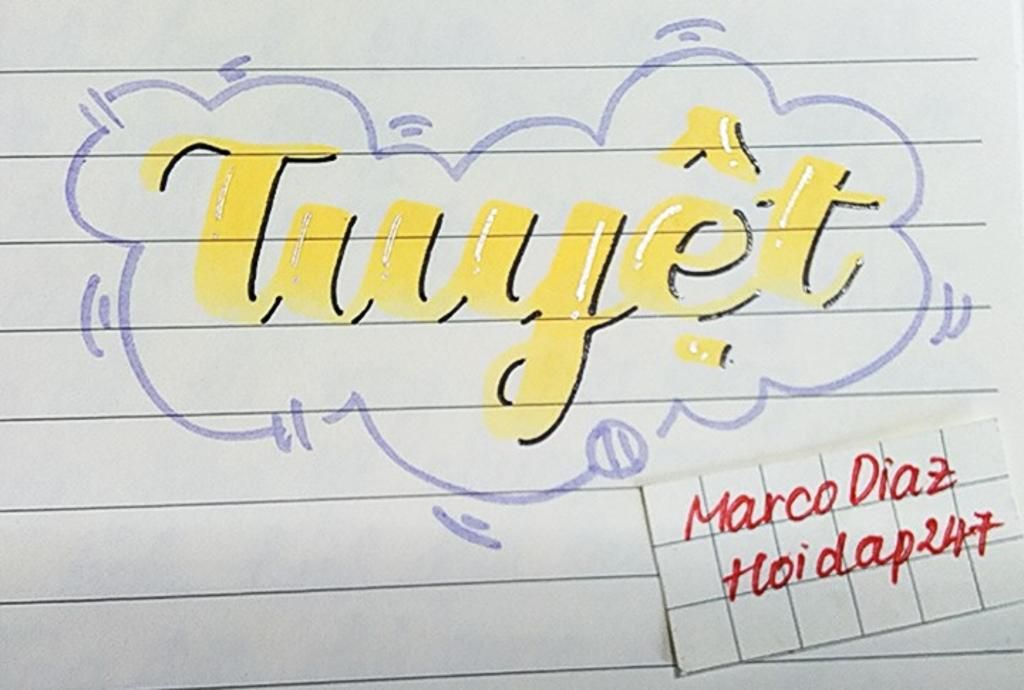 Tuyệt
Marco Diaz
Hoidap247